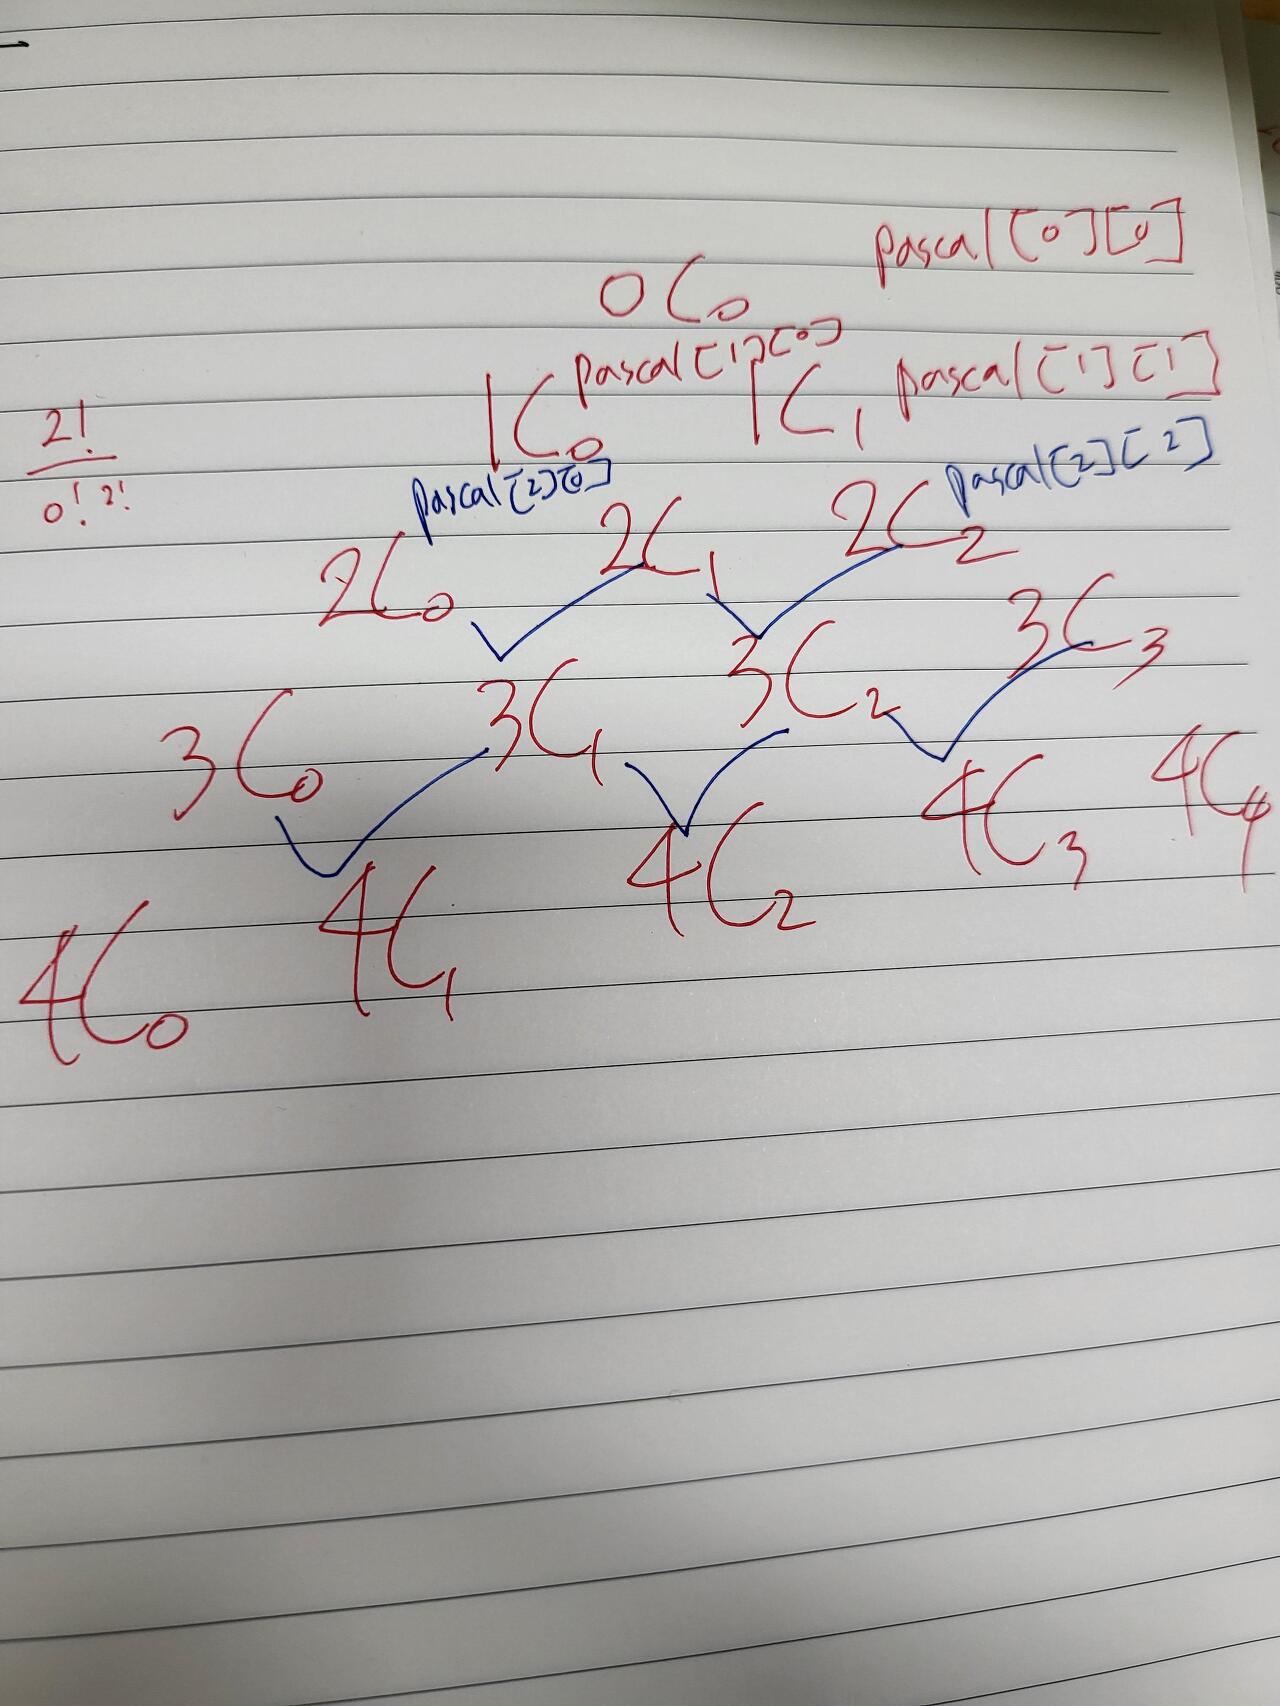 pascal[0][0]
0C0
pascal[1][0]
1C0 1C1 pascal[1][1]
2!
0! 2!
pascal[2][0] pascal[2][2]
2C0 2C1 2C2
3C0 3C1 3C2 3C3
4C0 4C1 4C2 4C3 4C4